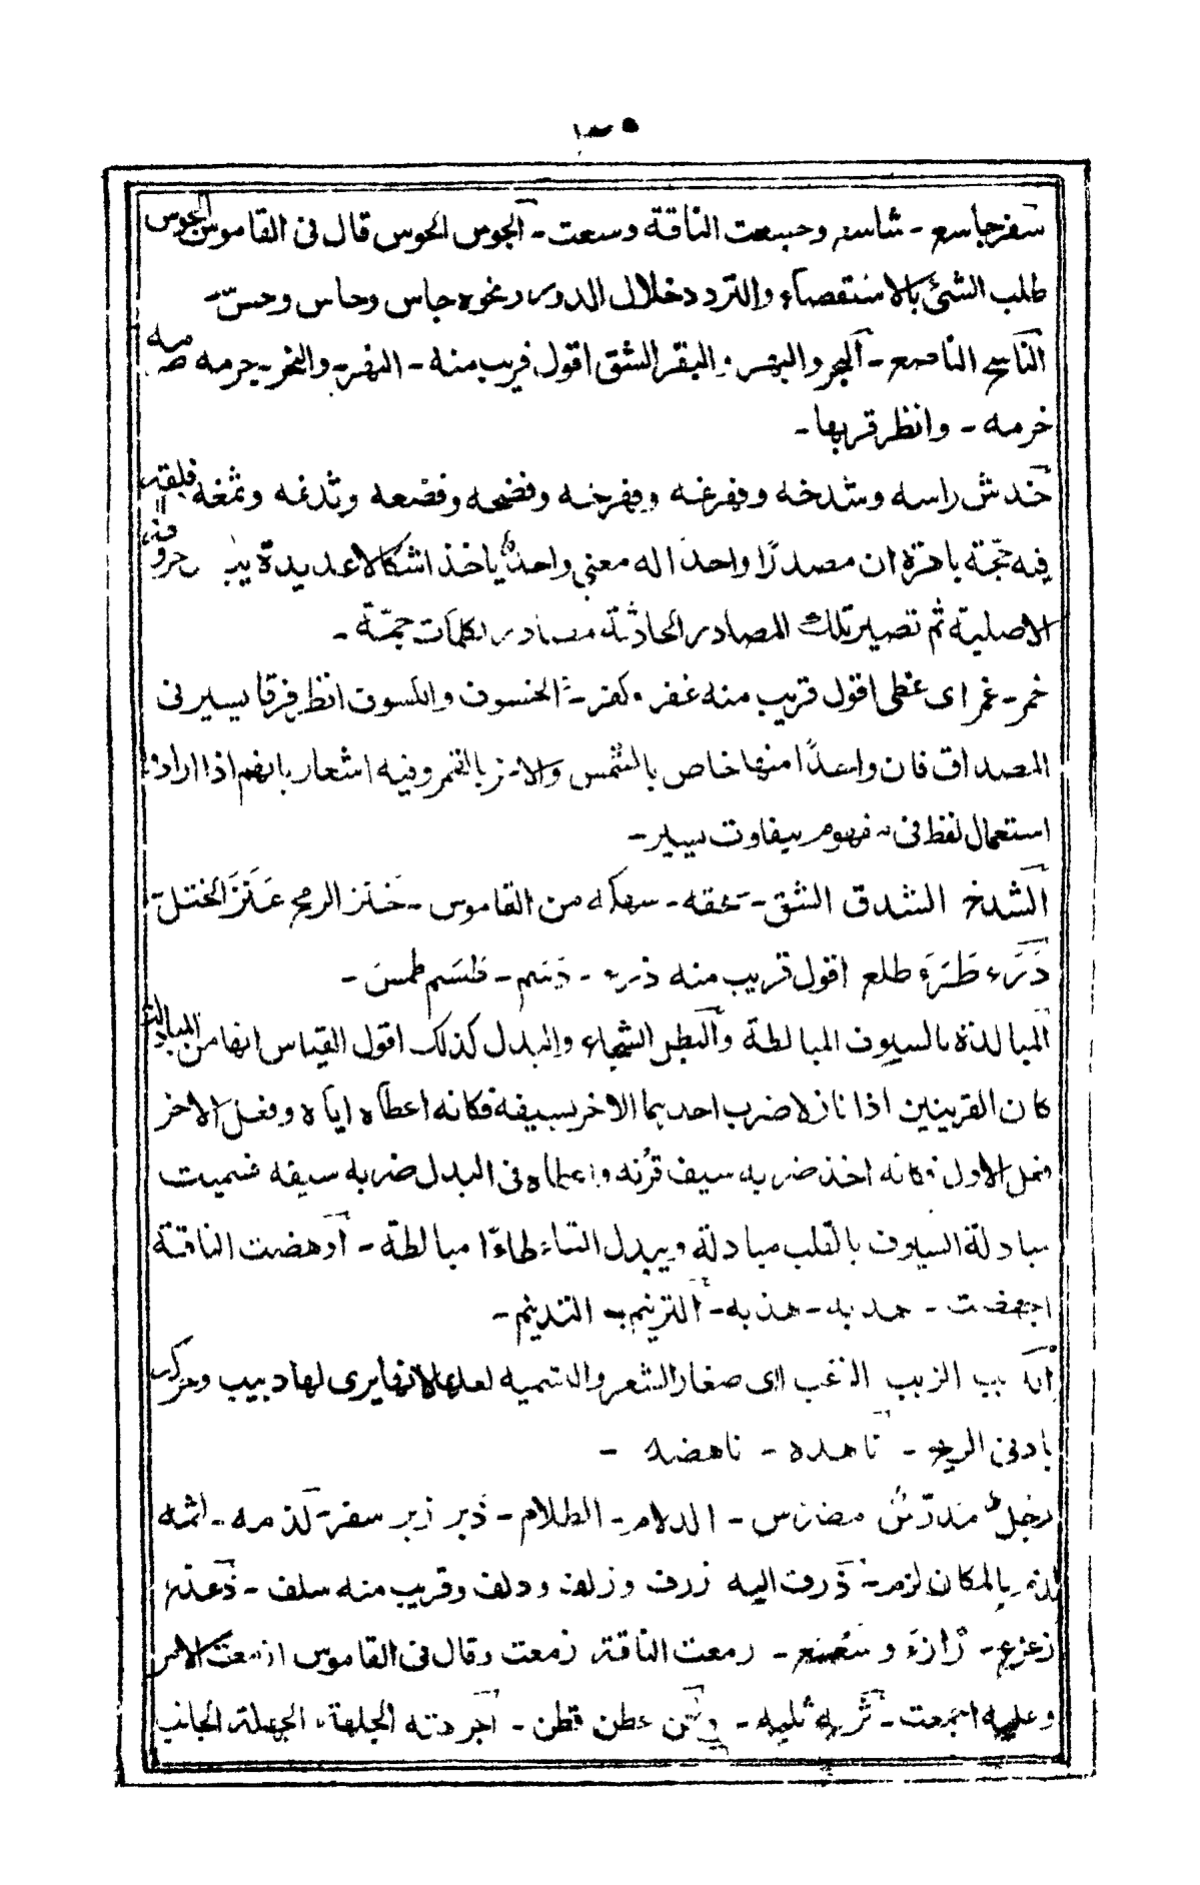 ١٣٥
سفر جاسع - شاسع وجسعت الناقة وسعت - الجوس الحوس قال فى القاموس الجوس
طلب الشئ بالاستقصاء والتردد خلال الدور ونحوه جاس وحاس وحسّ -
الناسع الناصع - البجر والبهر والبقر الشق اقول قريب منه - النهر - والنخر - جرمه صرمه
خرمه - وانظر قربها -
خدش راسه وشدخه وفهرغه وفهرخه وفضحه وفضعه وثدغه وثمغه فلقه
فيه حجّة باهرة ان مصدرًا واحدا له معنى واحدٌ ياخذ اشكالا عديدة حروفه
الاصلية ثم تصير تلك المصادر الحادثة مصادر لكلمات جمّة -
خمر - غمر اى غطى اقول قريب منه غفر وكفر - الخسوف والكسوف انظر فرقا يسير فى
المصداق فان واحدًا منها خاص بالشمس والاخر بالقمر وفيه اشعار بانهم اذا ارادوا
استعمال لفظ فى مفهوم بتفاوت يسير -
الشدخ الشدق الشق - سهكه من القاموس - خنز الريح عَنَزَ الختل -
دَرَء طَرَء طلع اقول قريب منه ذرء - دَسَم - طَسَم طمسَ -
المبالدة بالسيوف المبالطة والبطر الشجاء والبدل كذلك اقول القياس انها من المبادلة
كان القرينين اذا نازلا ضرب احدهما الاخر بسيفه فكانه اعطاه اياه وفعل الاخر
فعل الاول فكانه اخذ ضربه سيف قرنه واعطاه فى البدل ضربه سيفه فسميت
مبادلة السيوف بالقلب مبادلة ويبدل التاء طاءًا مبالطة - اوهضت الناقة
اجهضت - هدبه - هذبه - الترنيم - التدنيم -
الزبب الزغب اى صغار الشعر والتسمية لعلها لانها يرى لها دبيب وحركة
بادنى الريح - ناهده - ناهضه -
رجلٌ مدرّسٌ مضرس - الدلام - الظلام - ذبر زبر سفر - لذمه - لثمه
لذم بالمكان لزم - ذرف اليه زرف وزلف ودلف وقريب منه سلف - ذعذع
زعزع - زازء و - زمعت الناقة زمعت وقال فى القاموس ازمعت الامر
وعليه اجمعت - ثربه ثلبه - وثن عطن قطن - اجردته الجلهة، الجهلة، الجانب